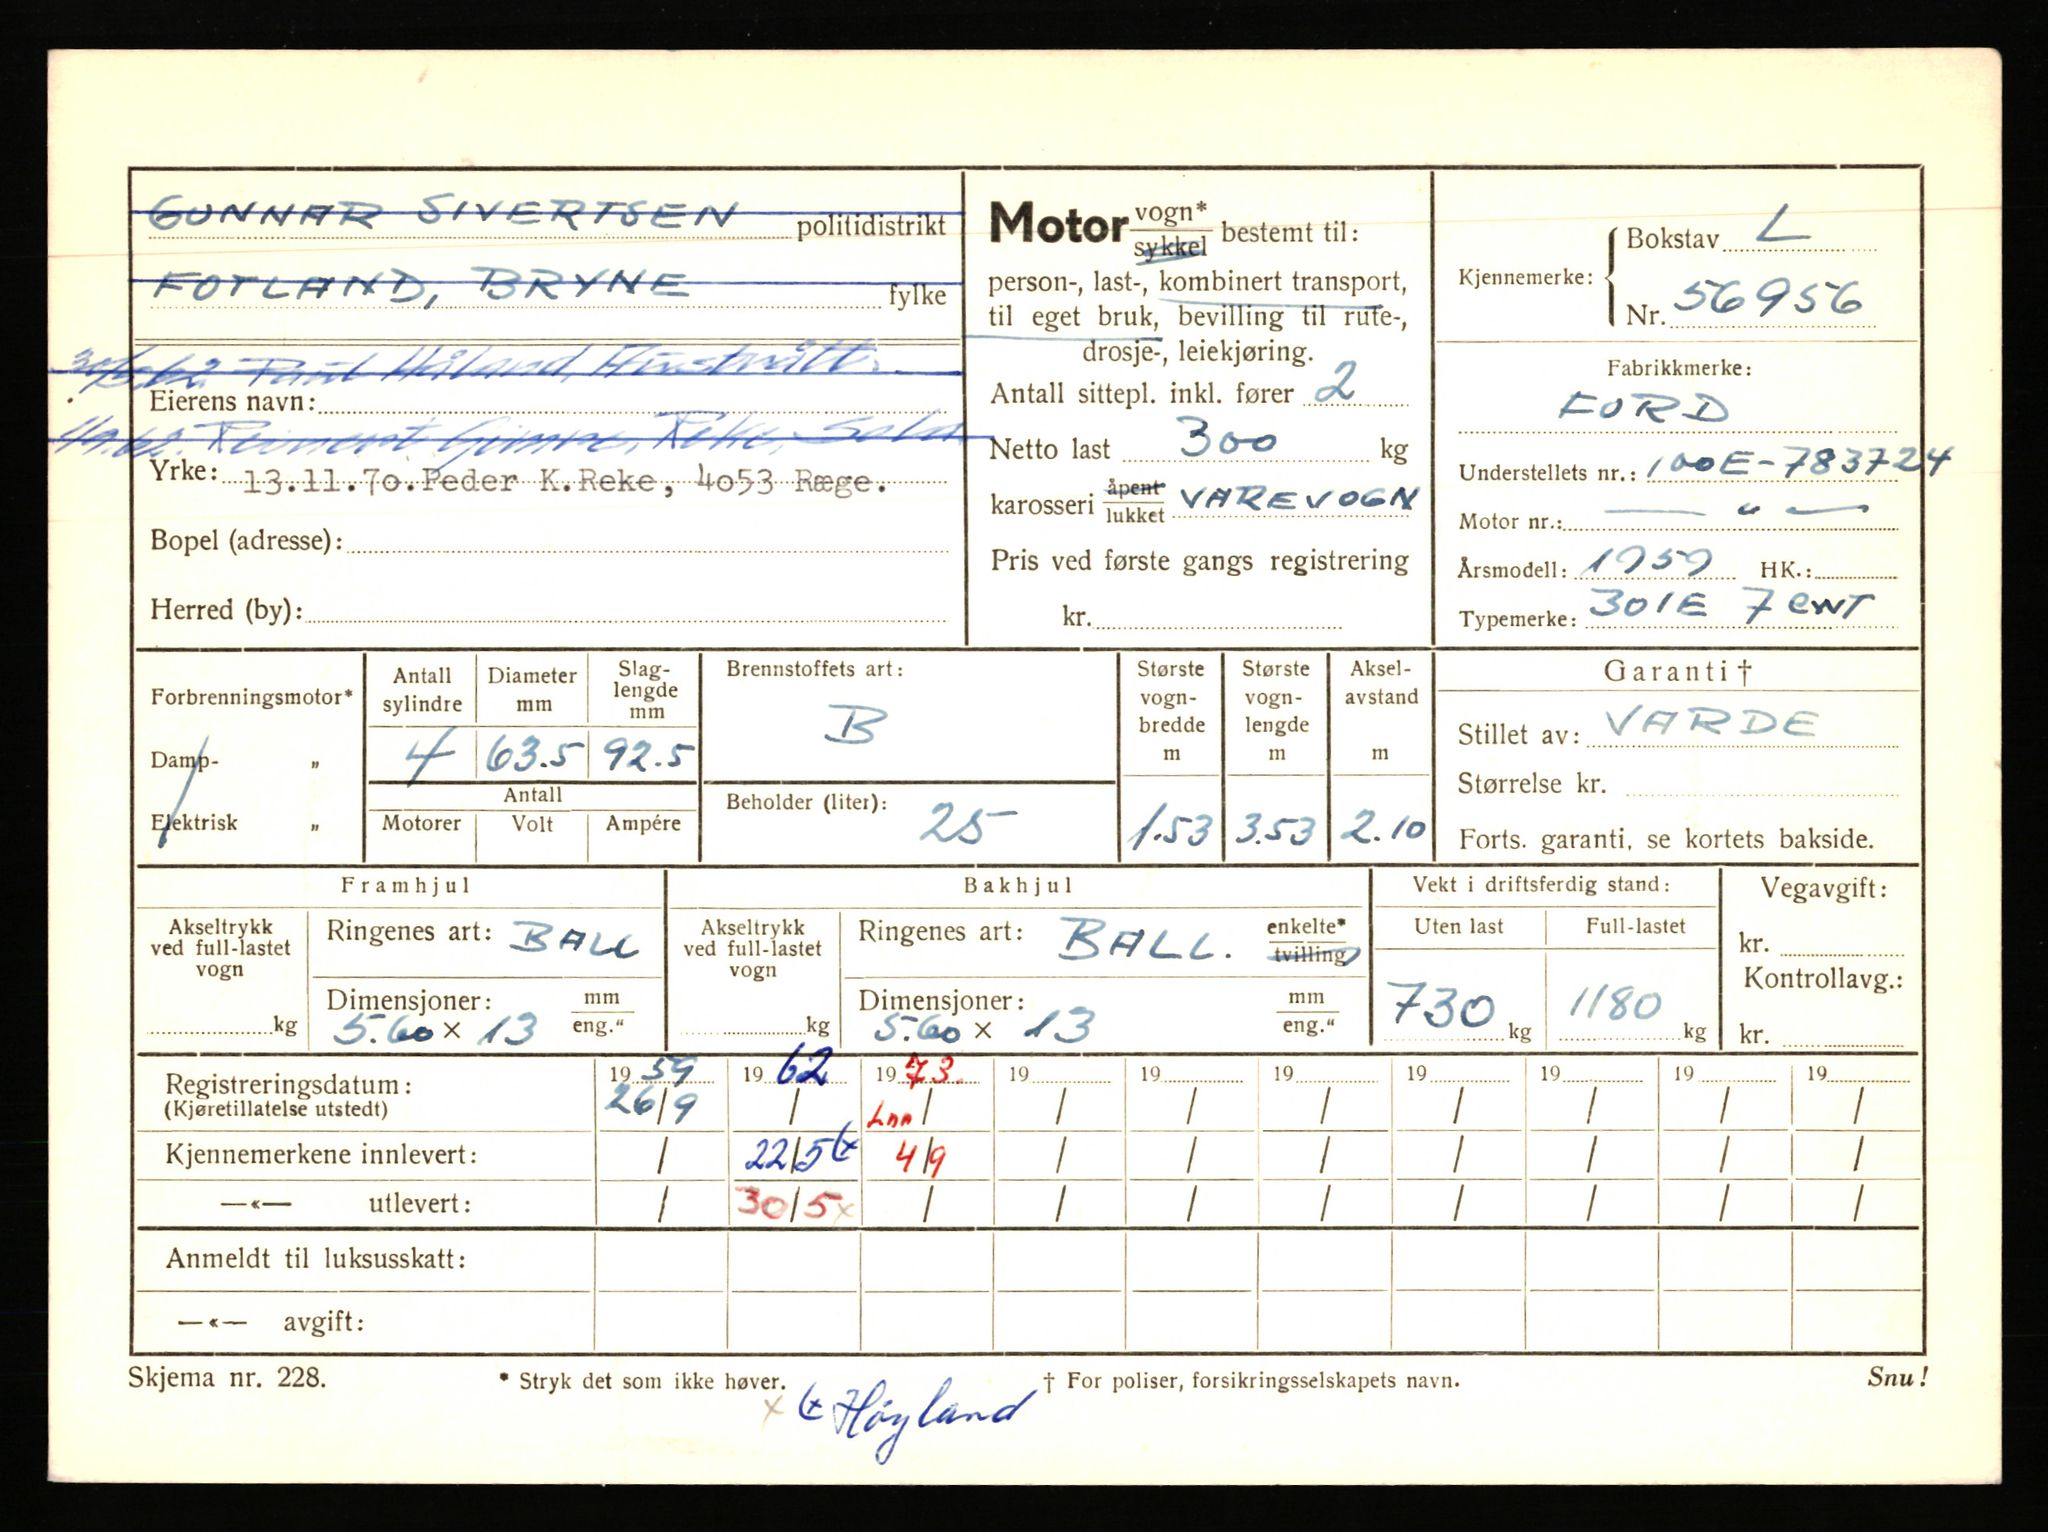 GUNNAR SIVERTSEN politidistrikt
FOTLAND, BRYNE fylke
Håland,
Eierens navn:
Gimre, Reke, Sola
Yrke: 13.11.70.Peder K.Reke, 4053 Ræge.
Bopel (adresse):
Herred (by):
Motor vogn* sykkel bestemt til:
person-, last-, kombinert transport,
til eget bruk, bevilling til rute-,
drosje-, leiekjøring.
Antall sittepl. inkl. fører 2
Netto last 300 kg
karosseri åpent lukket VAREVOGN
Pris ved første gangs registrering
kr.
Kjennemerke: Bokstav L
Nr. 56956
Fabrikkmerke:
FORD
Understellets nr.: 100E-783724
Motor nr.: — " —
Årsmodell: 1959 HK.:
Typemerke: 301E 7 cwt
Forbrenningsmotor*
Damp- „
Elektrisk „
Antall sylindre Diameter mm Slag-lengde mm
4 63.5 92.5
Antall
Motorer Volt Ampére
Brennstoffets art:
B
Beholder (liter): 25
Største vogn-bredde m Største vogn-lengde m Aksel-avstand m
1.53 3.53 2.10
Garanti †
Stillet av: VARDE
Størrelse kr.
Forts. garanti, se kortets bakside.
Framhjul
Akseltrykk ved full-lastet vogn
kg
Ringenes art: BALL
Dimensjoner: mm eng."
5.60 x 13
Bakhjul
Akseltrykk ved full-lastet vogn
kg
Ringenes art: BALL. enkelte* tvilling
Dimensjoner: mm eng."
5.60 x 13
Vekt i driftsferdig stand:
Uten last Full-lastet
730 kg 1180 kg
Vegavgift:
kr.
Kontrollavg.:
kr.
Registreringsdatum: 1959 1962 1973. 19 19 19 19 19 19 19
(Kjøretillatelse utstedt) 26/9 / / / / / / / / /
Kjennemerkene innlevert: / 22/5 4/9 / / / / / / /
—«— utlevert: / 30/5 x / / / / / / / /
Anmeldt til luksusskatt:
—«— avgift:
Skjema nr. 228. * Stryk det som ikke høver. † For poliser, forsikringsselskapets navn. Snu!
x Høyland